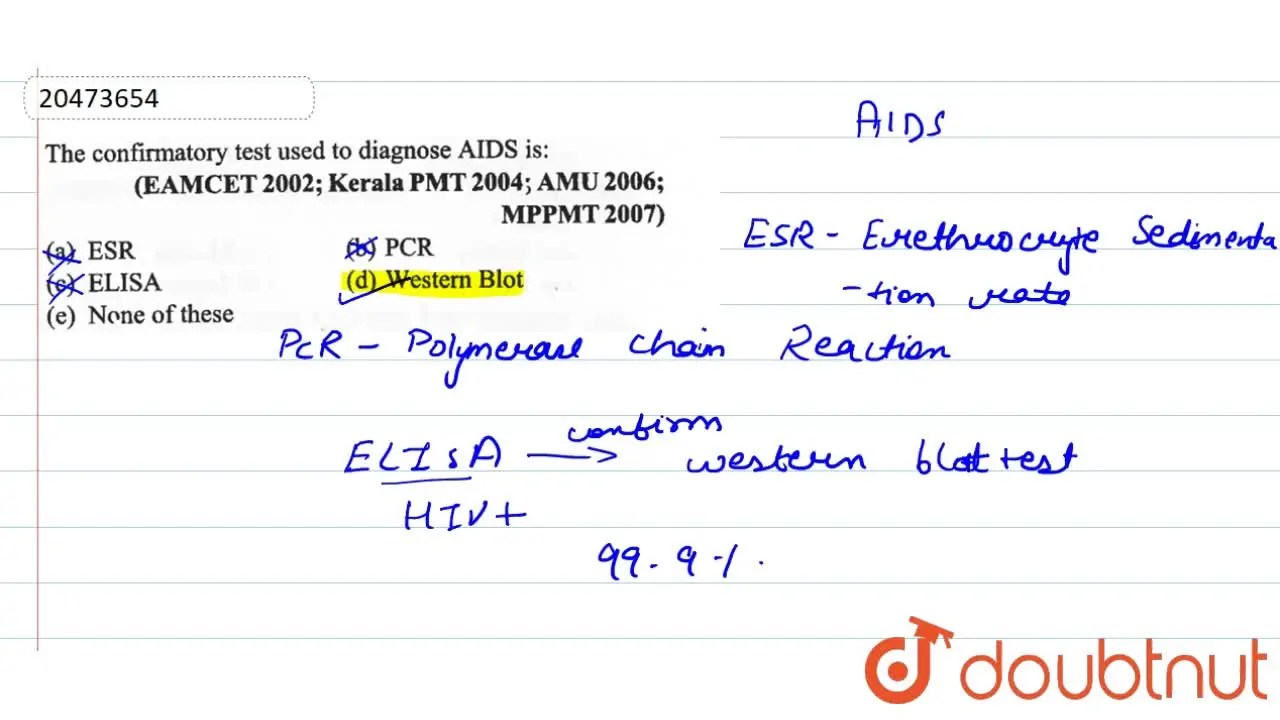 20473654
AIDS
The confirmatory test used to diagnose AIDS is:
(EAMCET 2002; Kerala PMT 2004; AMU 2006;
MPPMT 2007)
(a) ESR (b) PCR
(c) ELISA (d) Western Blot
(e) None of these
ESR - Erethrocryte Sedimenta
-tion rate
PCR - Polymerase Chain Reaction
ELISA → confirm western blot test
HIV+
99.9%.
doubtnut